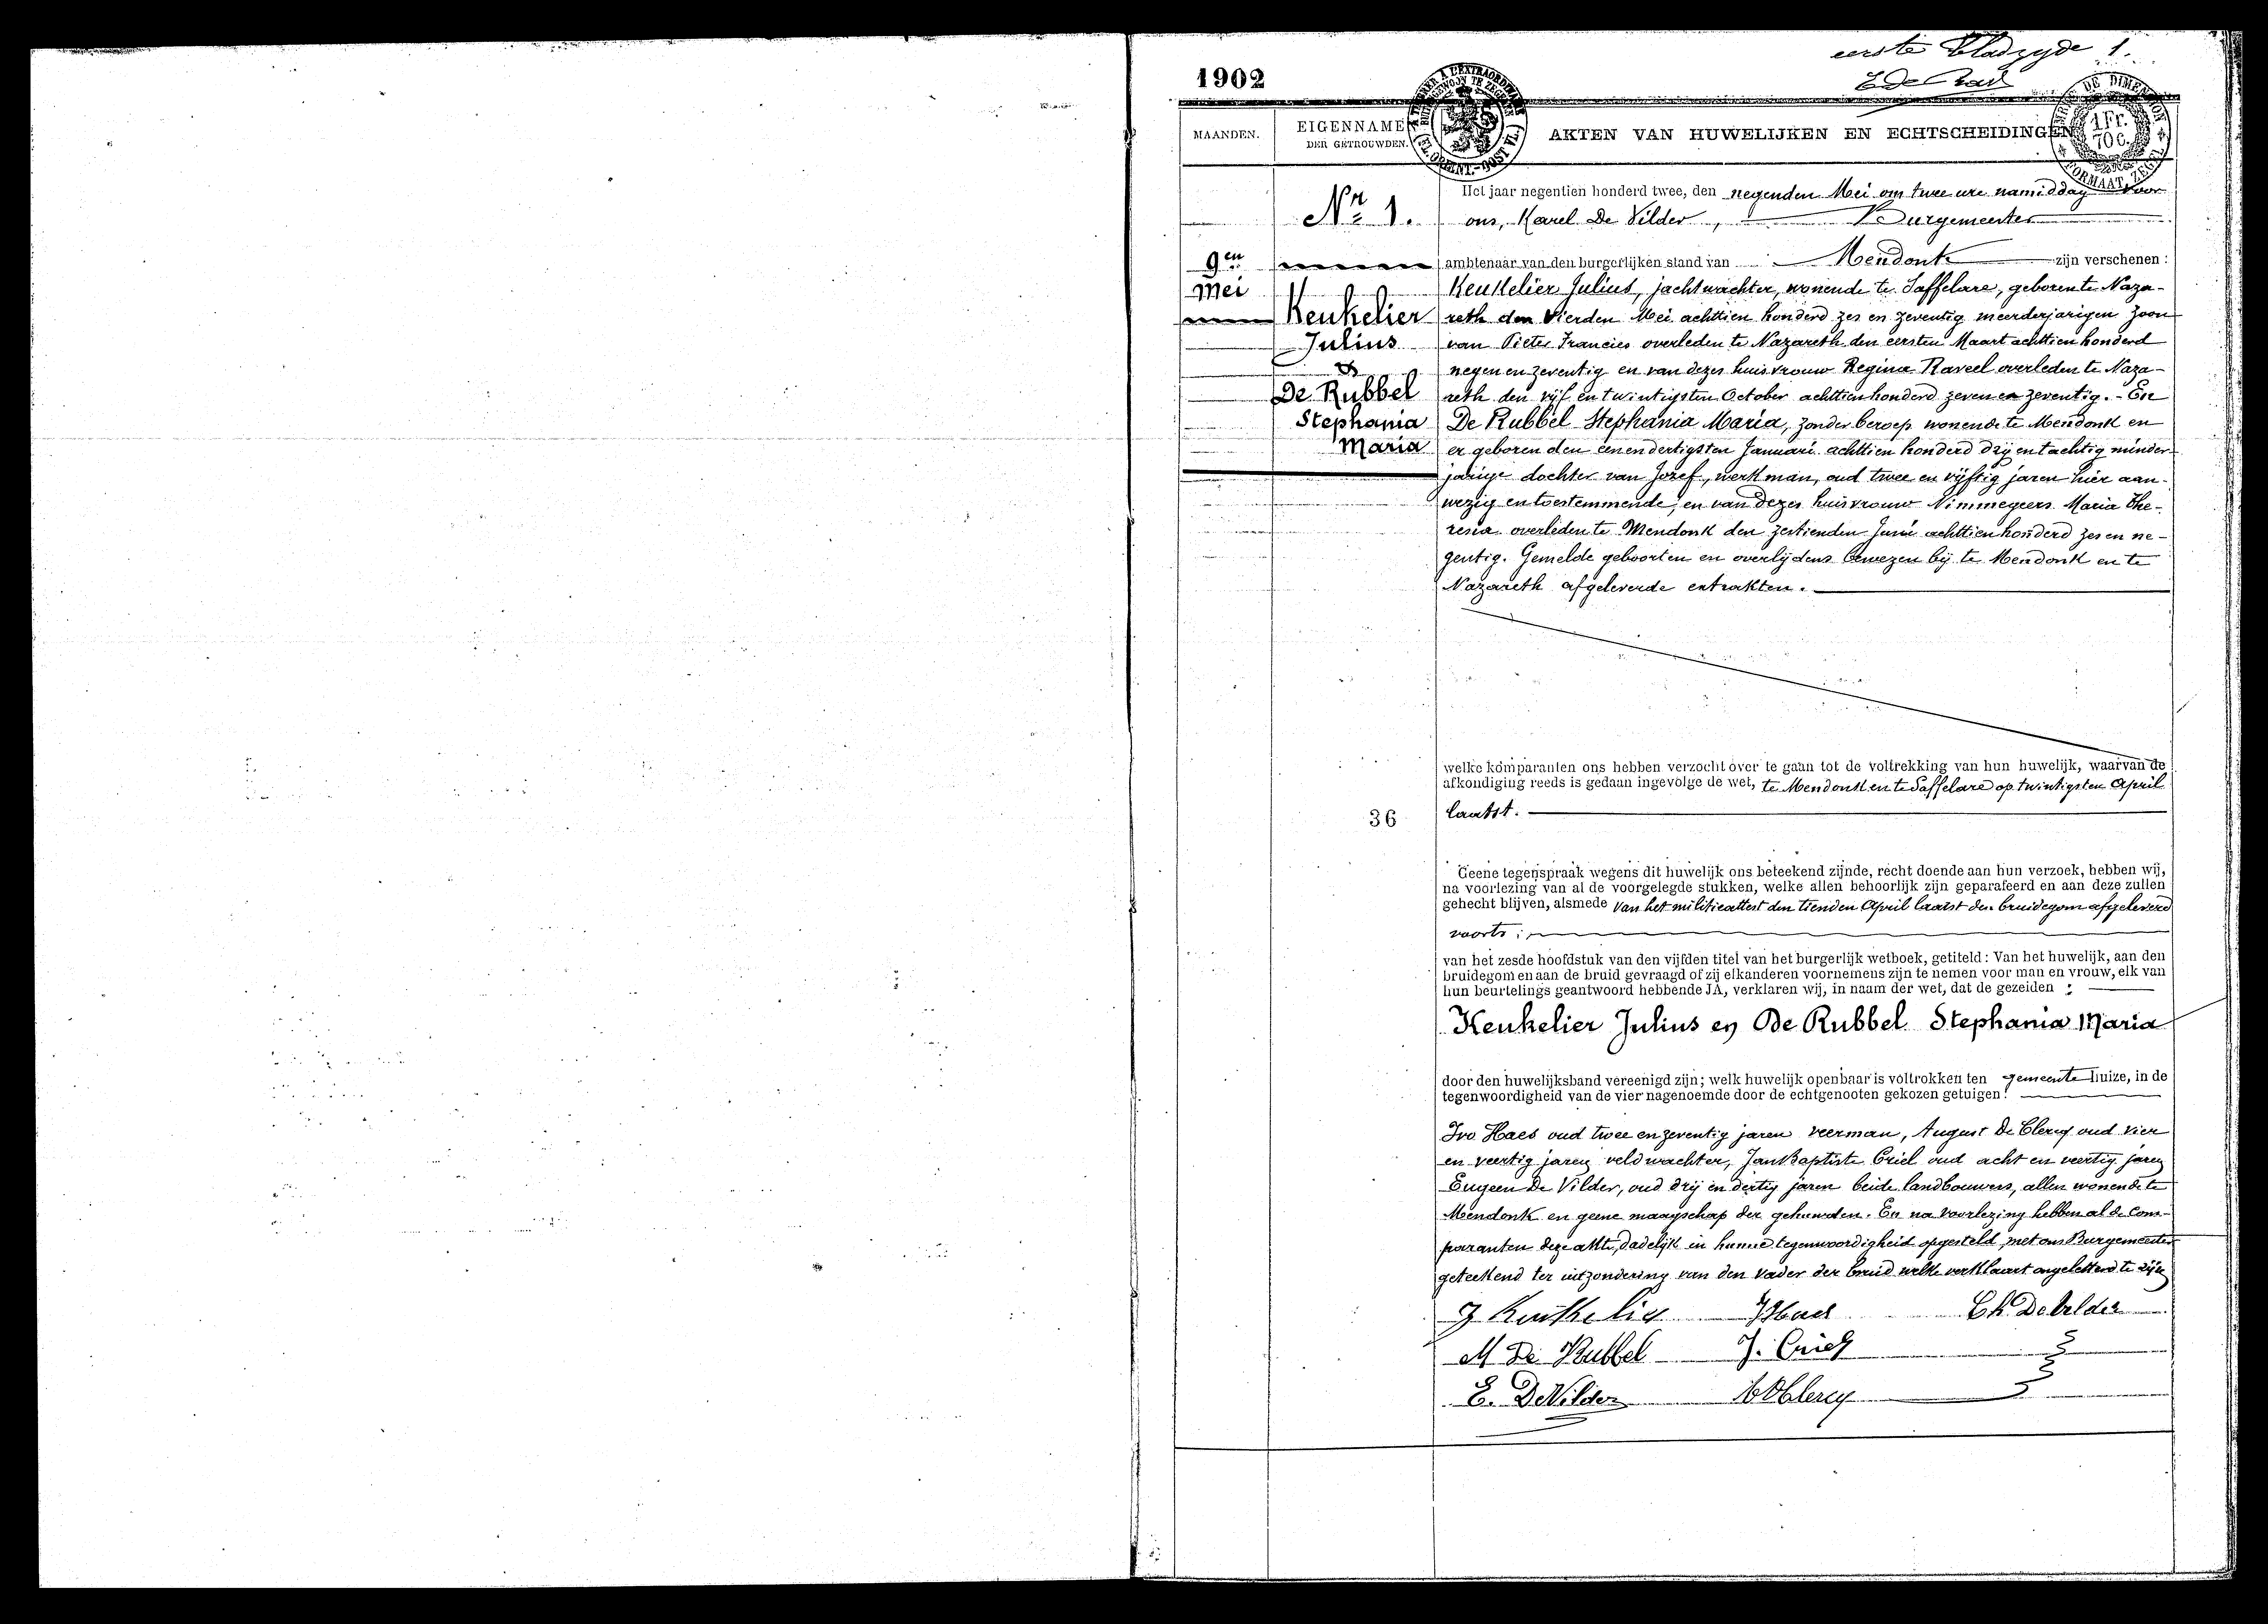 eerste bladzyde 1.
1902
MAANDEN.
EIGENNAMEN
DER GETROUWDEN.
AKTEN VAN HUWELIJKEN EN ECHTSCHEIDINGEN
1 Fr.
70 c.
Nr 1.
9en
Mei
Keukelier
Julius
&
De Rubbel
Stephania
Maria
Het jaar negentien honderd twee, den negenden Mei om twee ure namiddag voor
ons, Karel De Vilder, Burgemeester
ambtenaar van den burgerlijken stand van Mendonk zijn verschenen :
Keukelier Julius, jachtwachter, wonende te Saffelare, geboren te Naza-
reth den vierden Mei achttien honderd zes en zeventig meerderjarigen zoon
van Pieter Francies overleden te Nazareth den eersten Maart achttien honderd
negen en zeventig en van dezes huisvrouw Regina Raveel overleden te Naza-
reth den vijf en twintigsten October achttien honderd zeven en zeventig. - En
De Rubbel Stephania Maria, zonder beroep wonende te Mendonk en
er geboren den eenendertigsten Januari achttien honderd drij en tachtig minder-
jarige dochter van Jozef, werkman, oud twee en vijftig jaren hier aan-
wezig en toestemmende, en van dezes huisvrouw Nimmegeers Maria The-
resia overleden te Mendonk den zestienden Junii achttien honderd zes en ne-
gentig. Gemelde geboorten en overlijdens bewezen bij te Mendonk en te
Nazareth afgeleverde extrakten.
welke komparanten ons hebben verzocht over te gaan tot de voltrekking van hun huwelijk, waarvan de
afkondiging reeds is gedaan ingevolge de wet, te Mendonk en te Saffelare op twintigsten April
laatst.
36
Geene tegenspraak wegens dit huwelijk ons beteekend zijnde, recht doende aan hun verzoek, hebben wij,
na voorlezing van al de voorgelegde stukken, welke allen behoorlijk zijn geparafeerd en aan deze zullen
gehecht blijven, alsmede van het militieattest den tienden April laatst den bruidegom afgeleverd
voorts ;
van het zesde hoofdstuk van den vijfden titel van het burgerlijk wetboek, getiteld : Van het huwelijk, aan den
bruidegom en aan de bruid gevraagd of zij elkanderen voornemens zijn te nemen voor man en vrouw, elk van
hun beurtelings geantwoord hebbende JA, verklaren wij, in naam der wet, dat de gezeiden :
Keukelier Julius en De Rubbel Stephania Maria
door den huwelijksband vereenigd zijn; welk huwelijk openbaar is voltrokken ten gemeente huize, in de
tegenwoordigheid van de vier nagenoemde door de echtgenooten gekozen getuigen:
Ivo Haes oud twee en zeventig jaren veerman, August De Clercq oud vier
en veertig jaren veldwachter, Jan Baptiste Criel oud acht en veertig jaren
Eugeen De Vilder, oud drij en dertig jaren beide landbouwers, allen wonende te
Mendonk en geene maagschap der gehuwden. En na voorlezing hebben al de com-
paranten deze akte, dadelijk in hunne tegenwoordigheid opgesteld, met ons Burgemeester
geteekend ter uitzondering van den vader der bruid welke verklaart ongeletterd te zijn
J Keukelier
Ch. De Vilder
M De Rubbel
J. Criel
E. De Vilder
A D Clercq